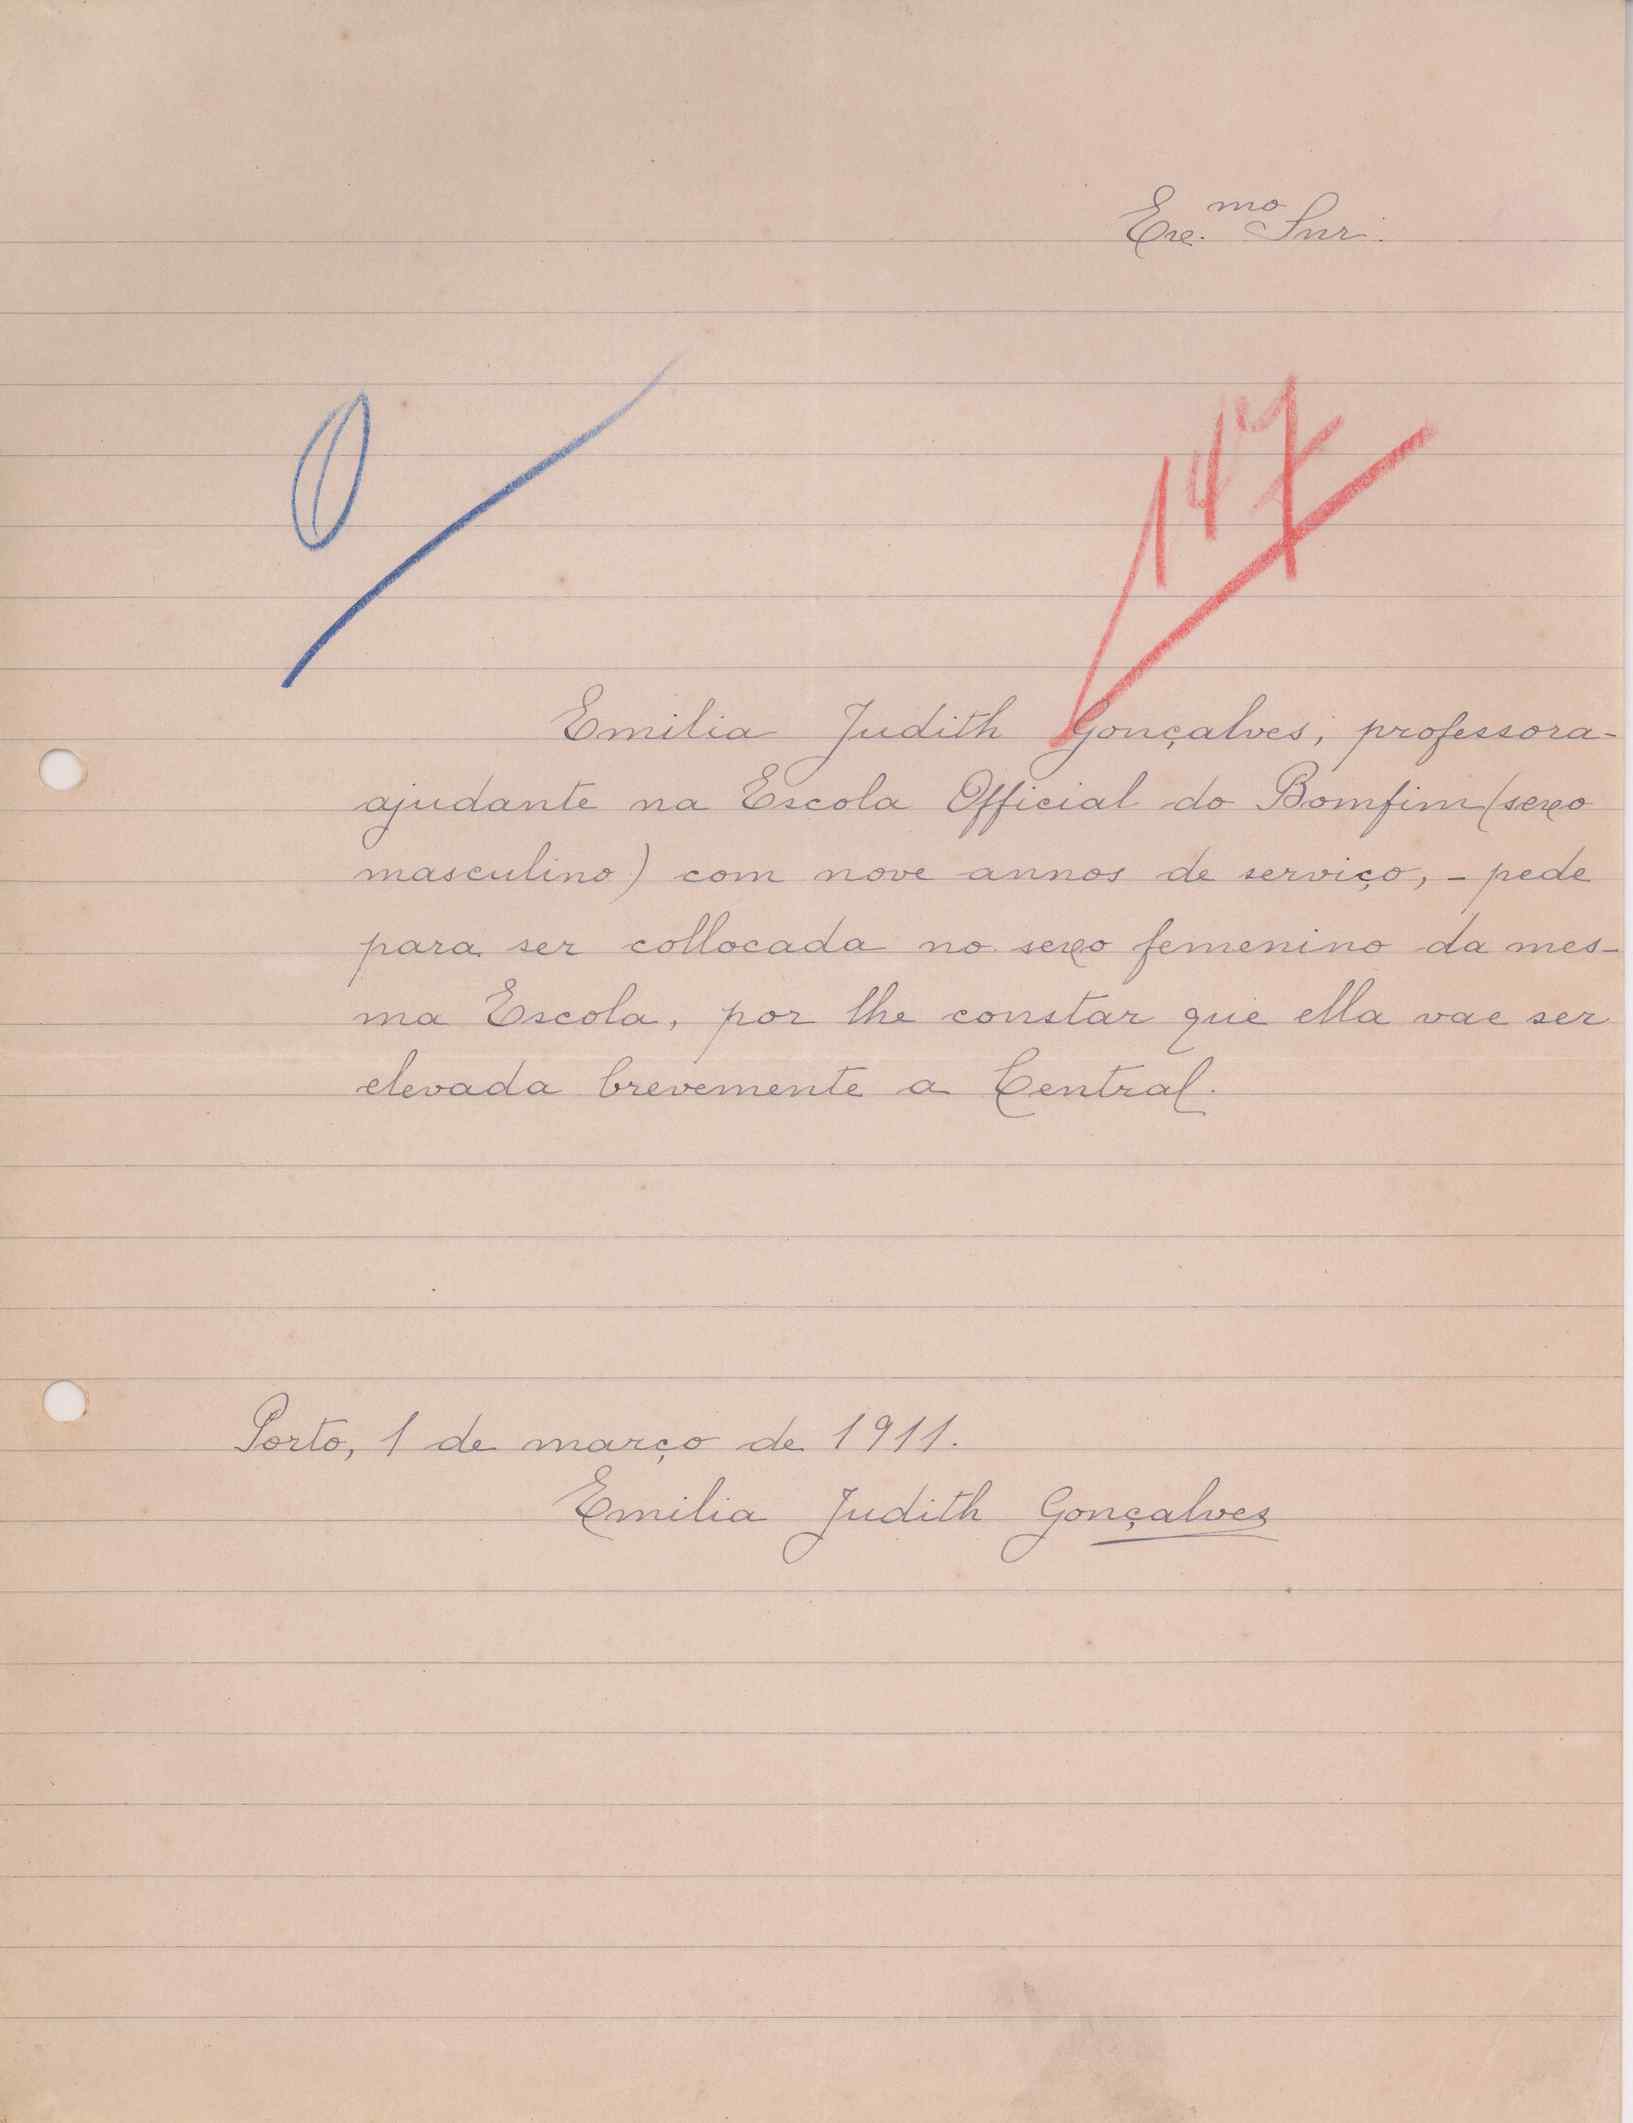 Exc.mo Snr.
0
147
Emilia Judith Gonçalves, professora-
ajudante na Escola Official do Bomfim (sexo
masculino) com nove annos de serviço, - pede
para ser collocada no sexo femenino da mes-
ma Escola, por lhe constar que ella vae ser
elevada brevemente a Central.
Porto, 1 de março de 1911.
Emilia Judith Gonçalves